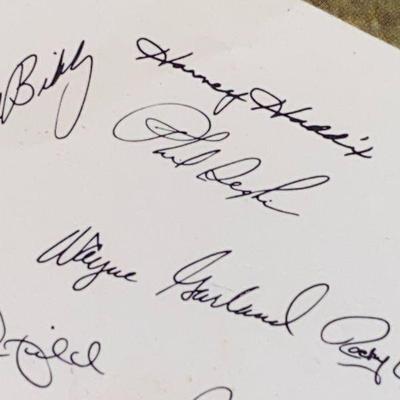 Bibby
Harvey Haddix
Phil Seghi
Wayne Garland
Rocky